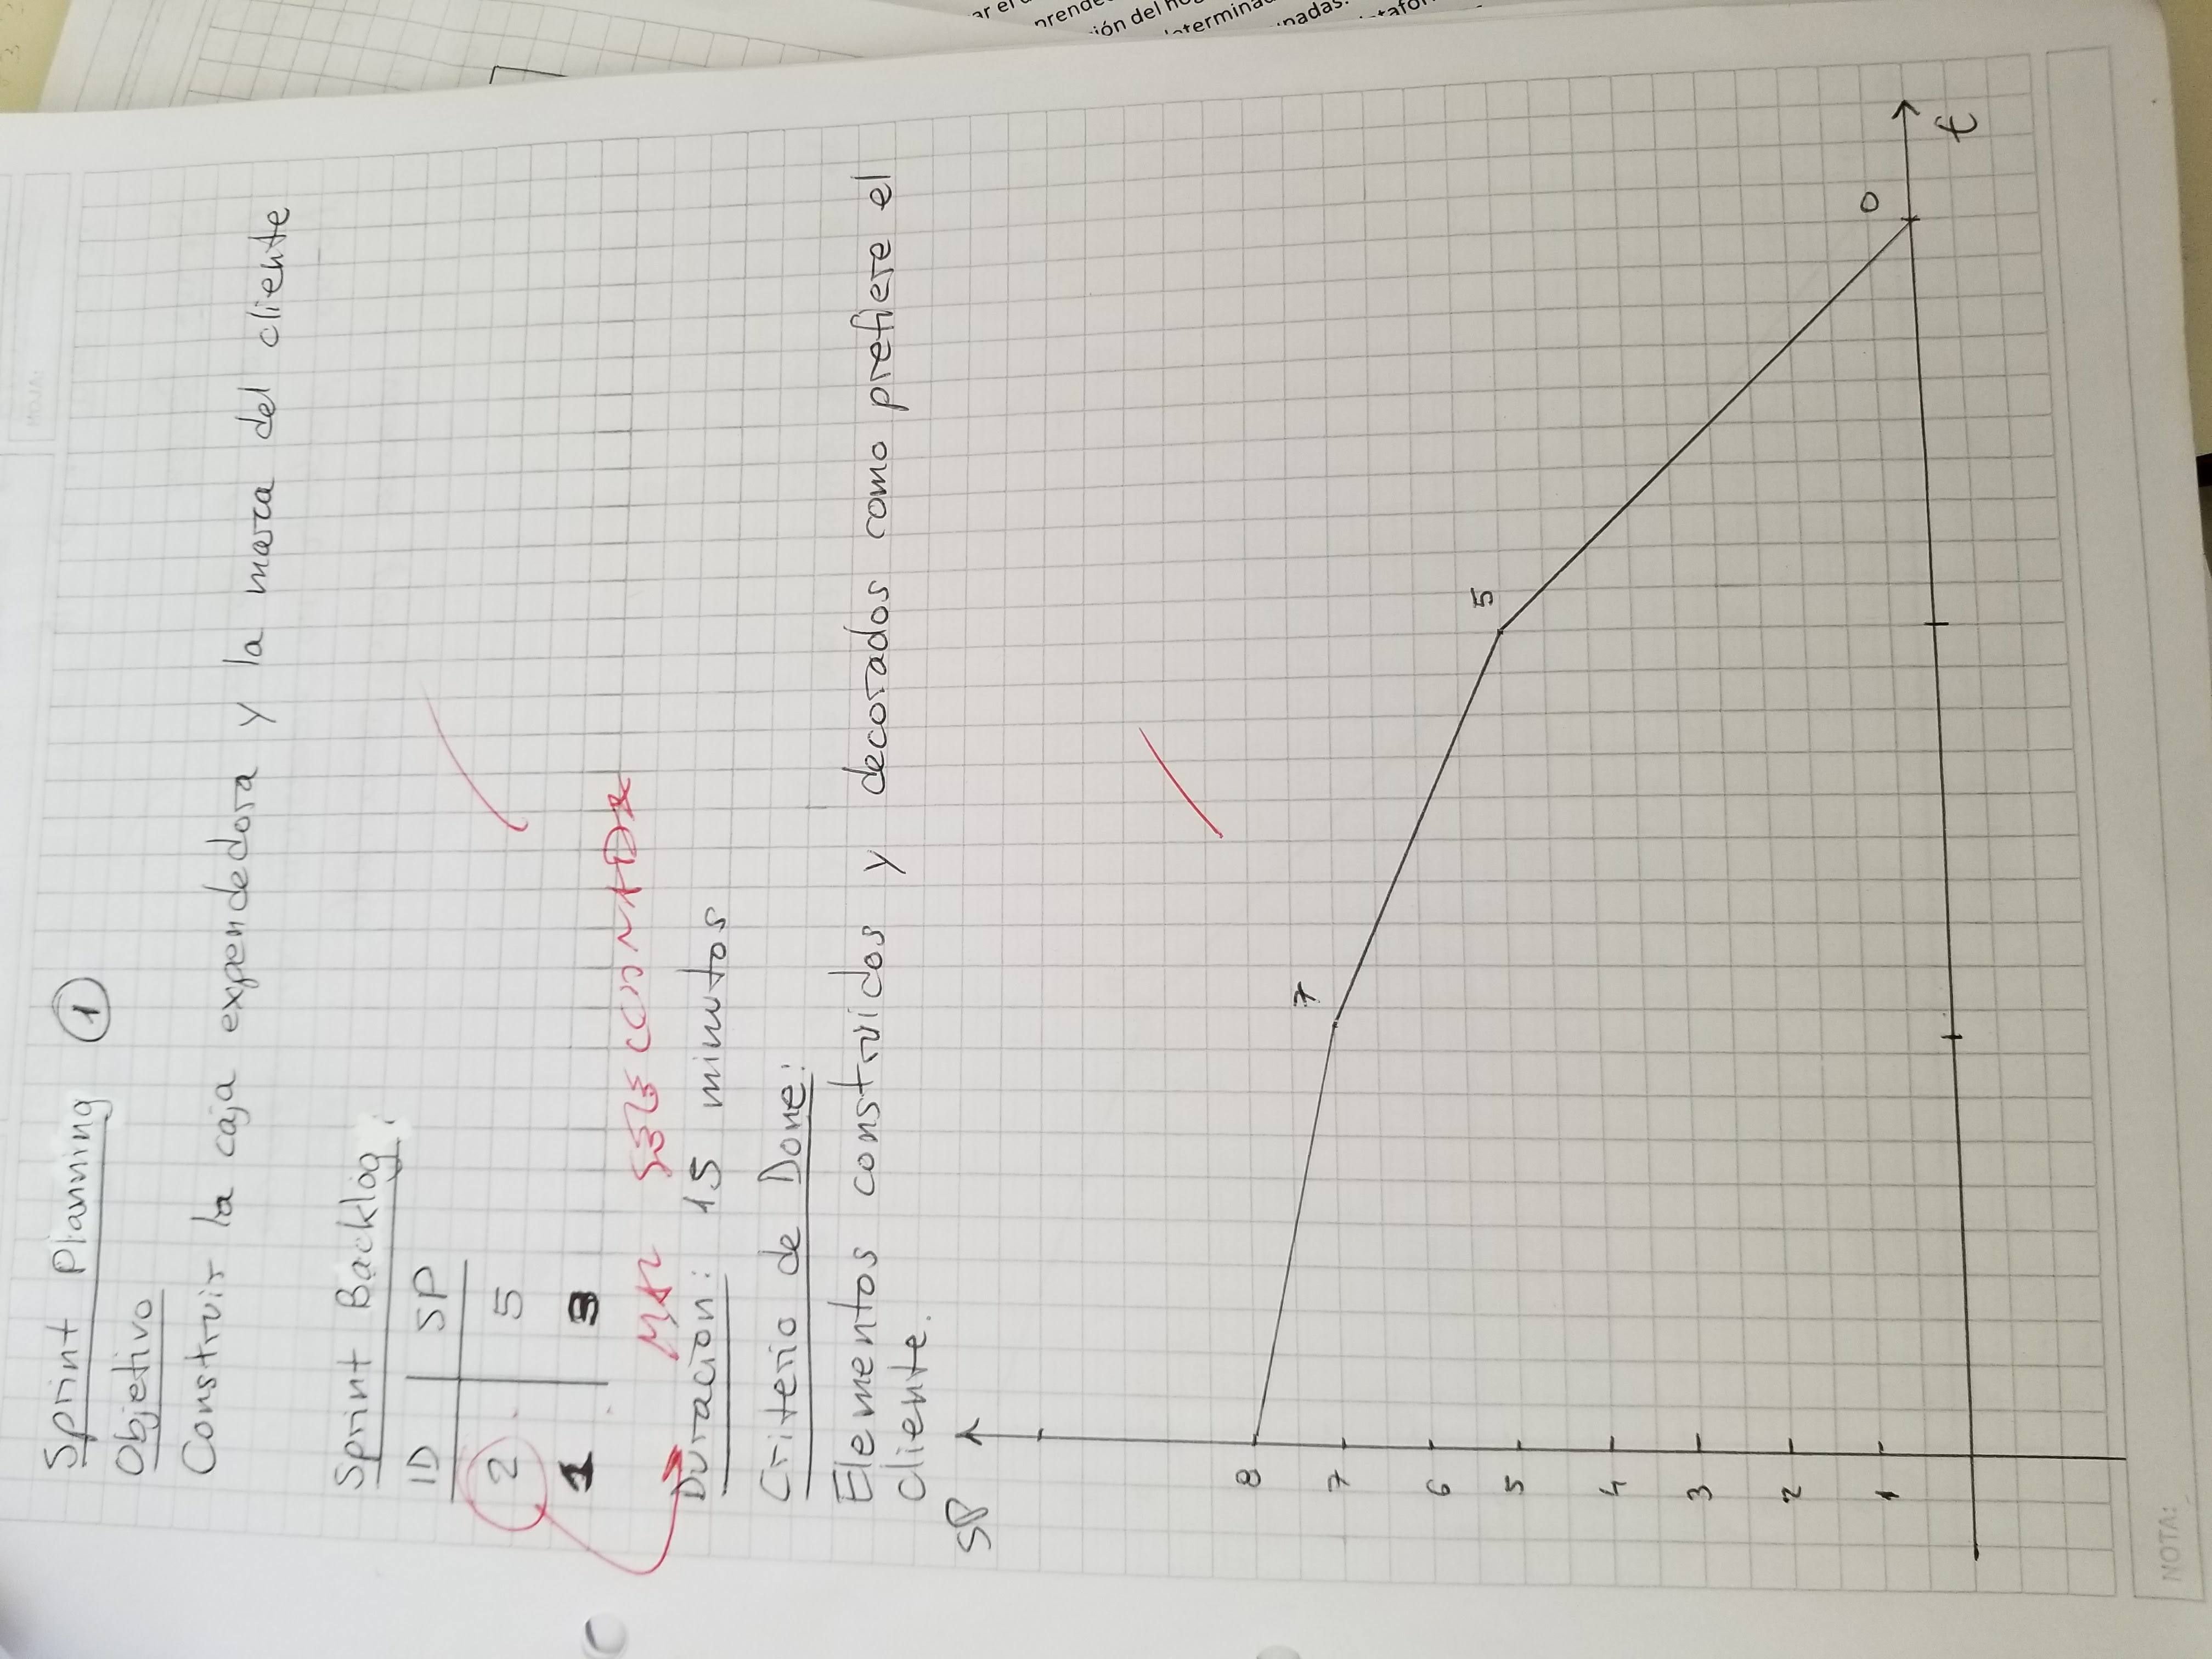 HOJA:
Sprint Planning 1
Objetivo
Construir la caja expendedora y la marca del cliente
Sprint Backlog:
ID SP
2 5
1 3
MAL SELECCIONADA
Duracion: 15 minutos
Criterio de Done:
Elementos construidos y decorados como prefiere el
cliente.
SP
8
7
7
6
5
5
4
3
2
1
0
t
NOTA: